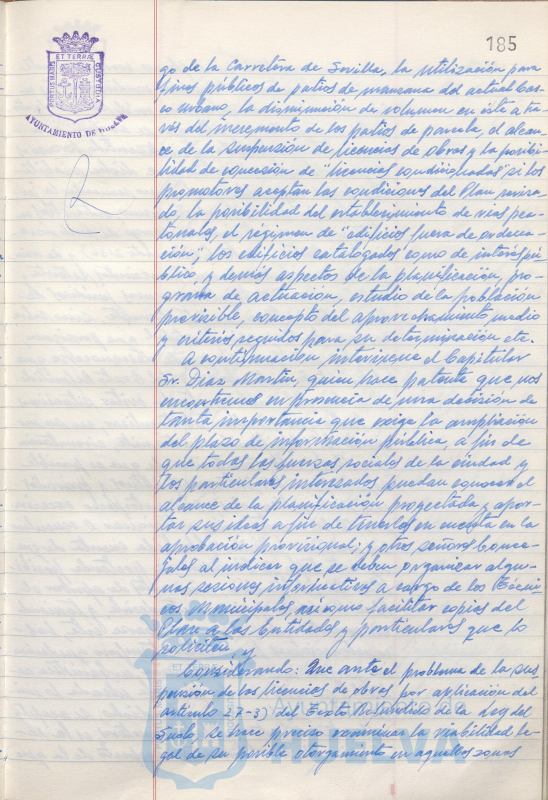 185
PORTUS MARIS ET TERRAE CUSTODIA
AYUNTAMIENTO DE HUELVA
go de la Carretera de Sevilla, la utilización para
fines públicos de patios de manzana del actual Cas-
co urbano, la disminución de volumen en éste a tra-
vés del incremento de los patios de parcela, el alcan-
ce de la suspensión de licencias de obras y la posibi-
lidad de concesión de "licencias condicionadas" si los
promotores aceptan las condiciones del Plan revisa-
do, la posibilidad del establecimiento de vías pea-
tonales, el régimen de "edificios fuera de ordena-
ción", los edificios catalogados como de interés pú-
blico y demás aspectos de la planificación, pro-
grama de actuación, estudio de la población
previsible, concepto del aprovechamiento medio
y criterios seguidos para su determinación etc.
A continuación interviene el Capitular
Sr. Díaz Martín, quien hace patente que nos
encontramos en presencia de una decisión de
tanta importancia que exige la ampliación
del plazo de información pública, a fin de
que todas las fuerzas sociales de la ciudad y
los particulares interesados puedan conocer el
alcance de la planificación proyectada y apor-
tar sus ideas a fin de tenerlos en cuenta en la
aprobación provisional; y otros señores Conce-
jales al indicar que se deben organizar algu-
nas sesiones informativas a cargo de los Técni-
cos Municipales, así como facilitar copias del
Plan a las Entidades y particulares que lo
soliciten y
Considerando: Que ante el problema de la sus-
pensión de las licencias de obras por aplicación del
artículo 27-3) del Texto Refundido de la Ley del
Suelo, se hace preciso examinar la viabilidad le-
gal de su posible otorgamiento en aquellas zonas
Ayuntamiento de
HUELVA